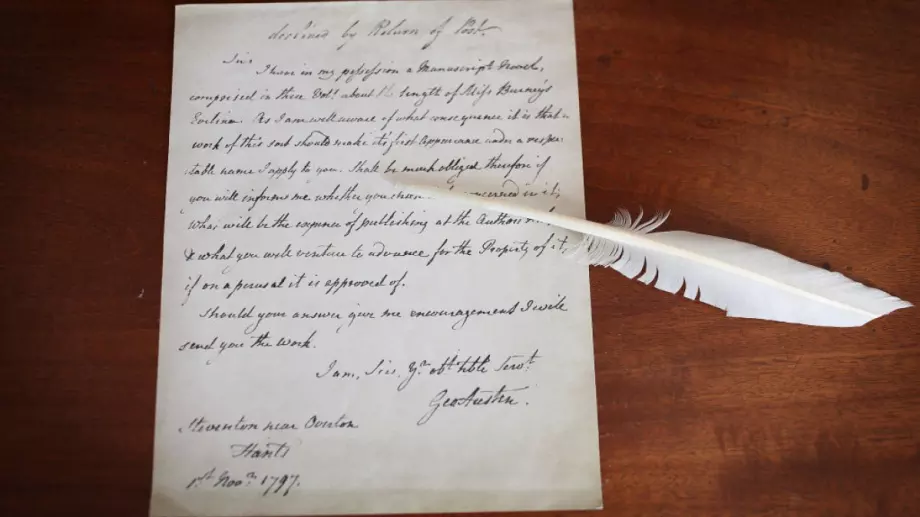 declined by Return of Post.
Sir
I have in my possession a Manuscript Novel,
comprised in three Vols. about the length of Miss Burney's
Evelina. As I am well aware of what consequence it is that a
work of this sort should make its first appearance under a respec
table name I apply to you. Shall be much obliged therefore if
you will inform me whether you concerned in it;
What will be the expence of publishing at the Author's
& what you will venture to advance for the Property of it,
if on a perusal it is approved of.
Should your answer give me encouragement I will
send you the Work.
I am, Sir, Yr. obt. hble Servt.
Geo Austen.
Steventon near Overton
Hants
1st. Novr. 1797.